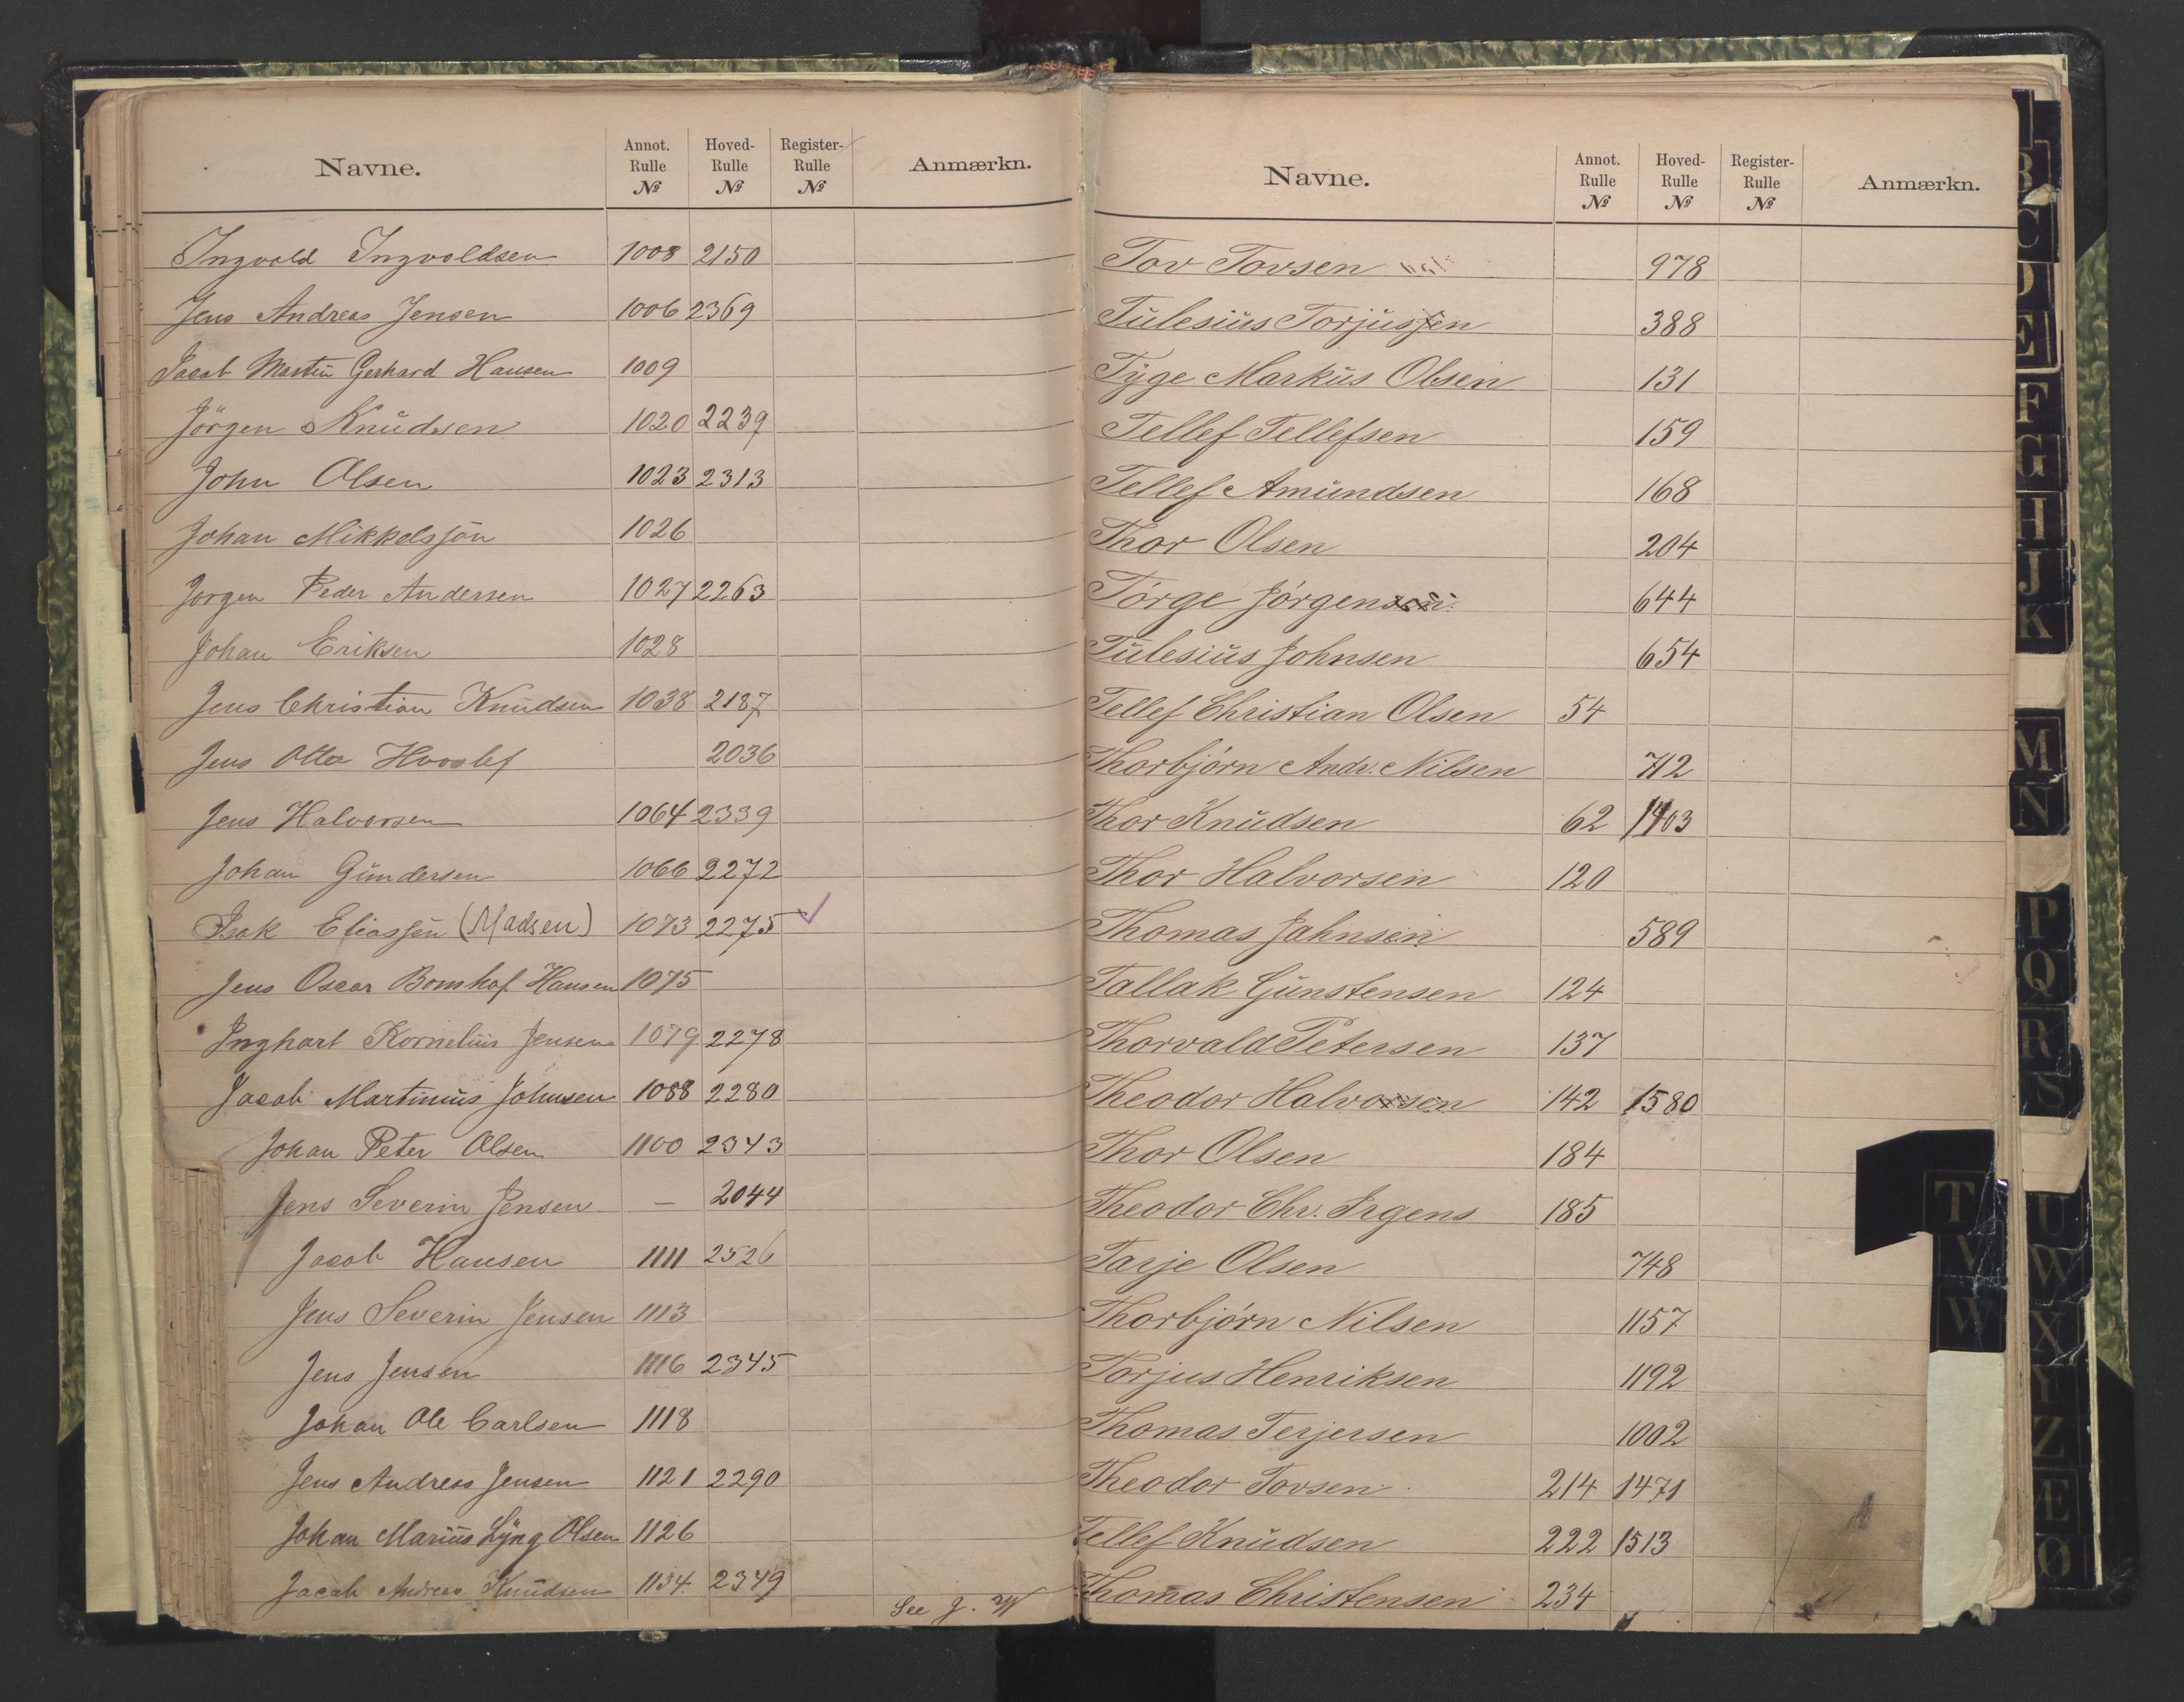 Navne. Annot. Rulle № Hoved-Rulle № Register-Rulle № Anmærkn.
Ingvald Ingvaldsen 1008 2150
Jens Andreas Jensen 1006 2369
Jacob Martin Gerhard Hansen 1009
Jörgen Knudsen 1020 2239
John Olsen 1023 2313
Johan Mikkelsjön 1026
Jorgen Peder Andersen 1027 2263
Johan Eriksen 1028
Jens Christian Knudsen 1038 2187
Jens Otto 2036
Jens Halvorsen 1064 2339
Johan Gundersen 1066 2272
Isak Eliassen (Madsen) 1073 2275 ✓
Jens Oscar Bomhof Hansen 1075
Inghart Kornelius Jensen 1079 2278
Jacob Martinius Johnsen 1088 2280
Johan Peter Olsen 1100 2343
Jens Severin Jensen — 2044
Jacob Hansen 1111 2526
Jens Severin Jensen 1113
Jens Jensen 1116 2345
Johan Ole Carlsen 1118
Jens Andreas Jensen 1121 2290
Johan Marius Lyng Olsen 1126
Jacob Andreas Knudsen 1134 2349
See J. W
Navne. Annot. Rulle № Hoved-Rulle № Register-Rulle № Anmærkn.
Tov Tovsen 978
Tulesius Torjussen 388
Tyge Markus Olsen 131
Tellef Tellefsen 159
Tellef Amundsen 168
Thor Olsen 204
Törge Jörgensen 644
Tulesius Johnsen 654
Tellef Christian Olsen 54
Thorbjörn Andr. Nilsen 712
Thor Knudsen 62 1403
Thor Halvorsen 120
Thomas Jahnsen 589
Tallak Gunstensen 124
Thorvald Petersen 137
Theodor Halvorsen 142 1580
Thor Olsen 184
Theodor Chr. Irgens 185
Tarje Olsen 748
Thorbjörn Nilsen 1157
Torjus Henriksen 1192
Thomas Terjersen 1002
Theodor Tovsen 214 1471
Tellef Knudsen 222 1513
Thomas Christensen 234
B
C
D
E
F
G
H
J
K
M
N
P
Q
R
S
T
V
W
U
W
X
Y
Z
Æ
Ø